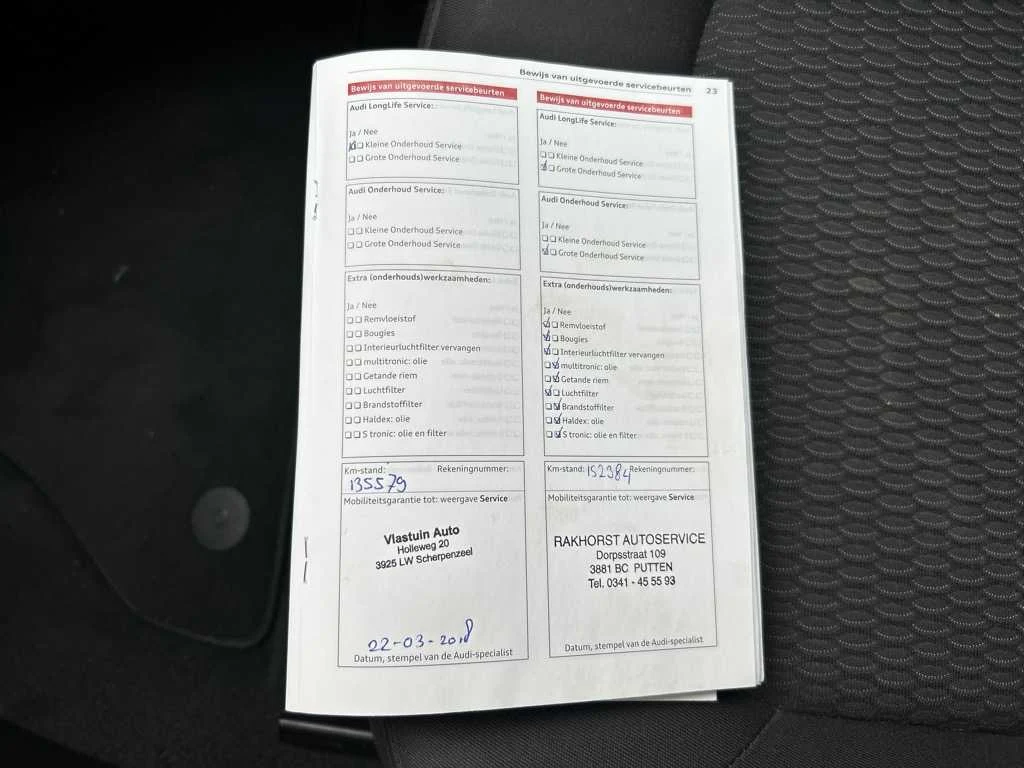 Bewijs van uitgevoerde servicebeurten 23
Bewijs van uitgevoerde servicebeurten
Audi LongLife Service:
Ja / Nee
Kleine Onderhoud Service
Grote Onderhoud Service
Audi Onderhoud Service:
Ja / Nee
Kleine Onderhoud Service
Grote Onderhoud Service
Extra (onderhouds)werkzaamheden:
Ja / Nee
Remvloeistof
Bougies
Interieurluchtfilter vervangen
multitronic: olie
Getande riem
Luchtfilter
Brandstoffilter
Haldex: olie
S tronic: olie en filter
Km-stand: Rekeningnummer:
135579
Mobiliteitsgarantie tot: weergave Service
Vlastuin Auto
Holleweg 20
3925 LW Scherpenzeel
22-03-2018
Datum, stempel van de Audi-specialist
Bewijs van uitgevoerde servicebeurten
Audi LongLife Service:
Ja / Nee
Kleine Onderhoud Service
Grote Onderhoud Service
Audi Onderhoud Service:
Ja / Nee
Kleine Onderhoud Service
Grote Onderhoud Service
Extra (onderhouds)werkzaamheden:
Ja / Nee
Remvloeistof
Bougies
Interieurluchtfilter vervangen
multitronic: olie
Getande riem
Luchtfilter
Brandstoffilter
Haldex: olie
S tronic: olie en filter
Km-stand: 152384 Rekeningnummer:
Mobiliteitsgarantie tot: weergave Service
RAKHORST AUTOSERVICE
Dorpsstraat 109
3881 BC PUTTEN
Tel. 0341 - 45 55 93
Datum, stempel van de Audi-specialist